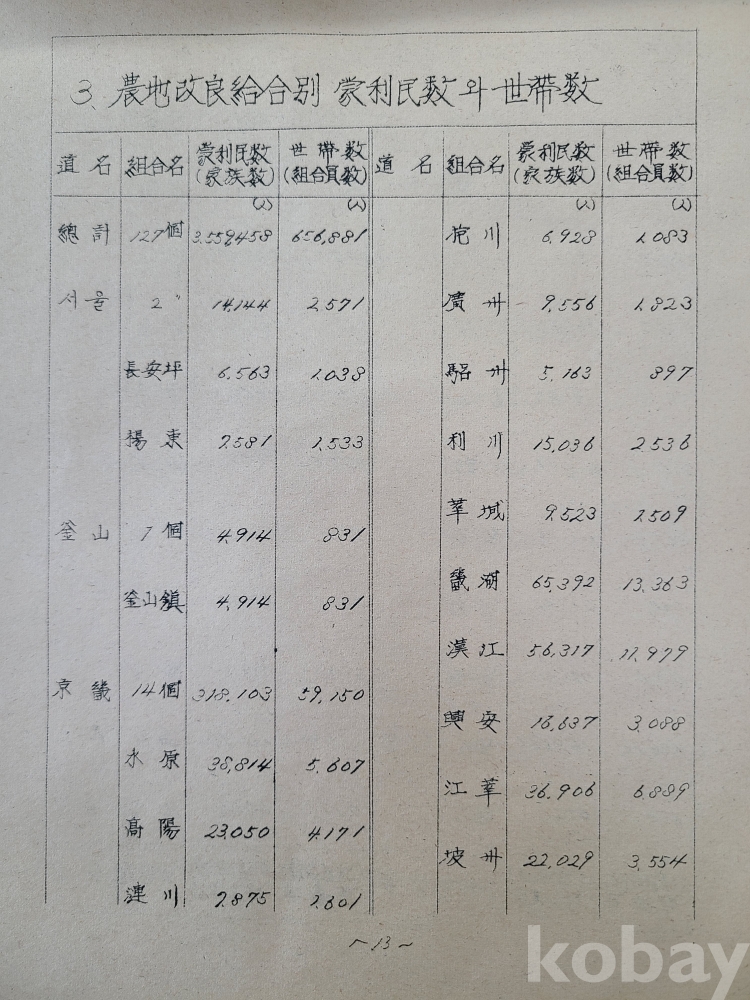 3. 農地改良給合别 蒙利民数와 世帶数
道名 組合名 蒙利民数 (家族数) 世帶数 (組合員数) 道名 組合名 蒙利民数 (家族数) 世帶数 (組合員数)
(人) (人) (人) (人)
總計 127個 3,559,458 656,881 抱川 6,928 1,083
서울 2〃 14,144 2,571 廣州 9,556 1,823
長安坪 6,563 1,038 驪州 5,163 897
楊東 7,581 1,533 利川 15,036 2,536
華城 9,523 1,509
釜山 1個 4,914 831
釜山鎭 4,914 831 畿湖 65,392 13,363
漢江 56,317 11,979
京畿 14個 318,103 59,150
興安 16,637 3,088
水原 38,814 5,607 江華 36,906 6,889
高陽 23,050 4,171 坡州 22,029 3,554
漣川 7,875 1,601
~13~
kobay